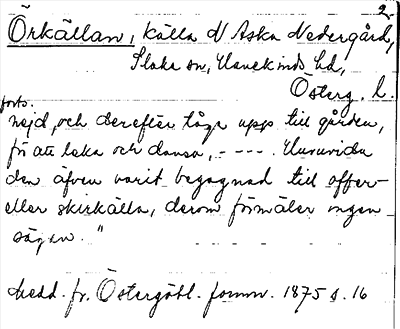 2
Örkällan, källa N Aska Nedergård,
Slaka sn, Hanekinds hd,
Österg. l.
forts.
nöjd, och derefter tåga upp till gården,
för att leka och dansa, - - - -. Huruvida
den äfven varit begagnad till offer-
eller skirkälla, derom förmäler ingen
sägen."
Medd. fr. Östergötl. fornm. 1875 s. 16